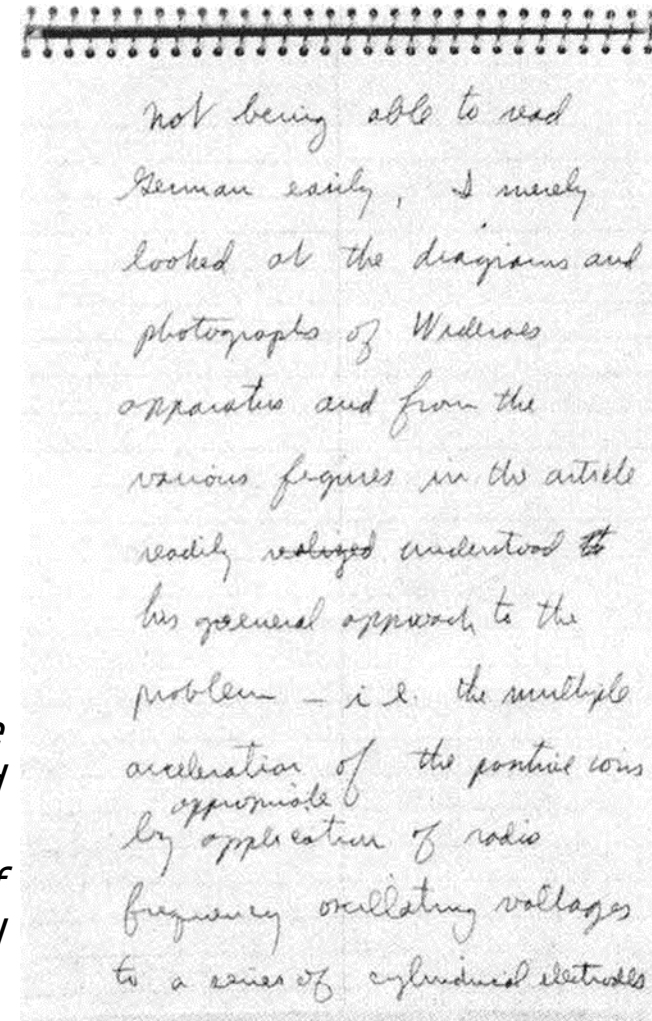 not being able to read
German easily, I merely
looked at the diagrams and
photographs of Wideroes
apparatus and from the
various figures in the article
readily realized understood
his general approach to the
problem — i e. the multiple
acceleration of the positive ions
appropriate
by application of radio
frequency oscillating voltages
to a series of cylindrical electrodes